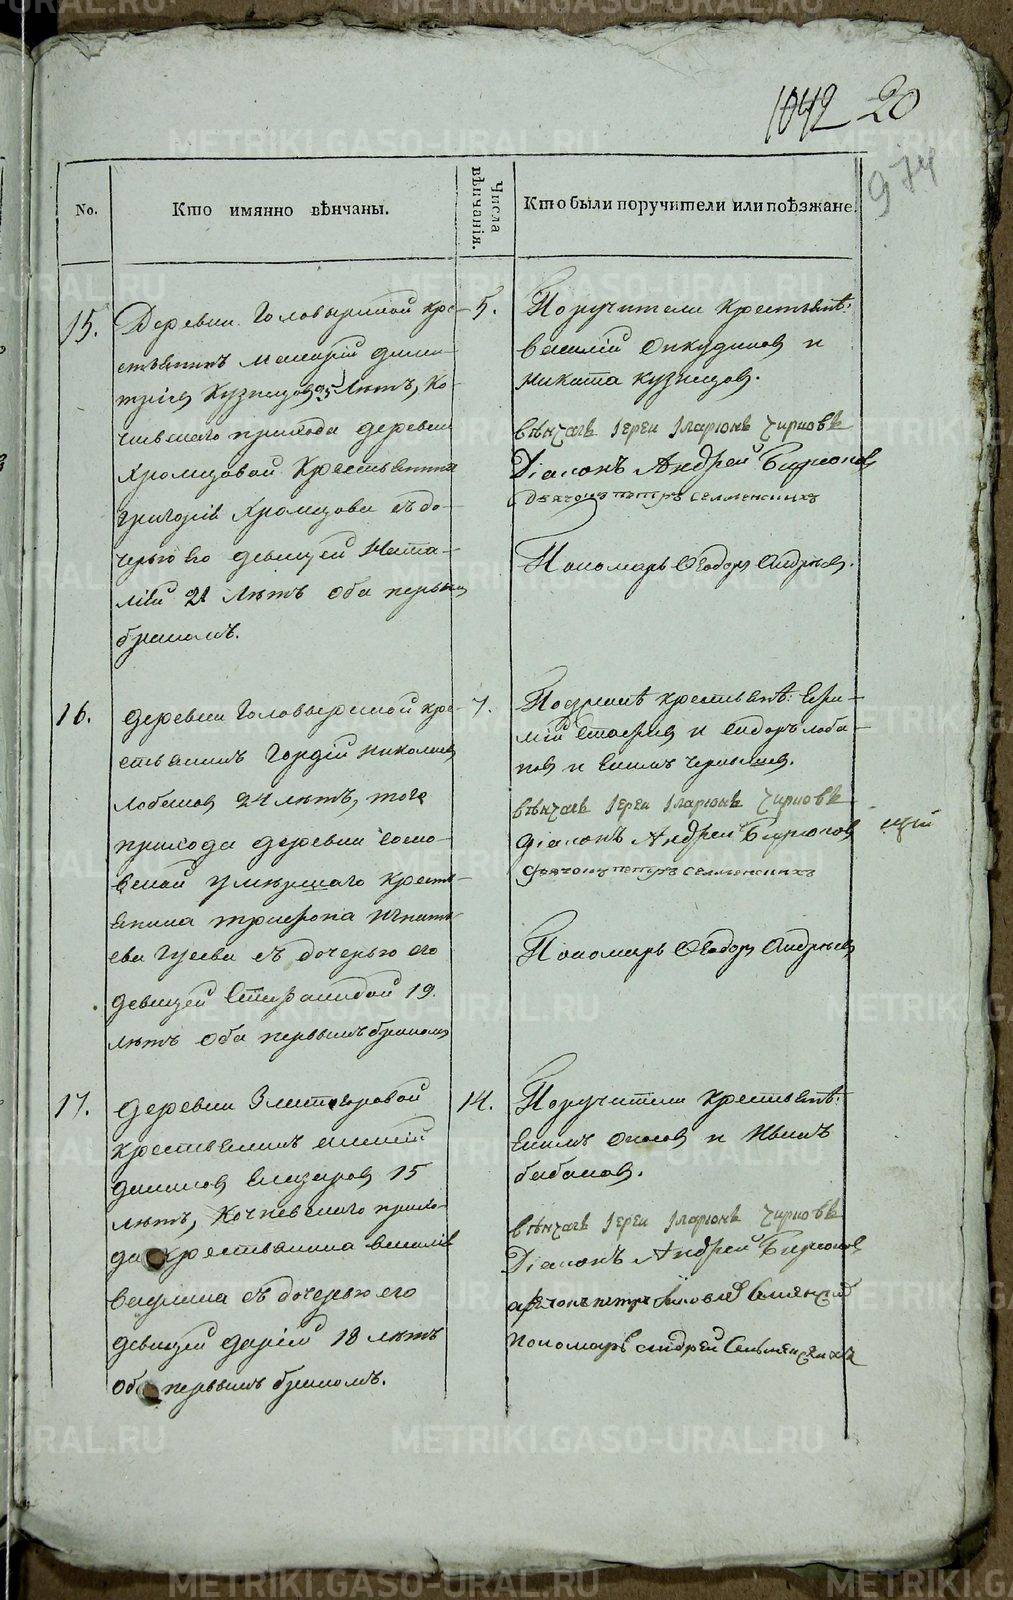 1042 20
974
No.
Кто имянно вѣнчаны.
Числа вѣнчанія.
Кто были поручители или поѣзжане.
15.
Деревни Головыриной кре-
стьянинъ Макарій Дими-
тріев Кузнецов 25 Лѣтъ, Ко-
чневскаго прихода деревни
Хромцовой Крестьянина
Григорія Хромцова съ до-
черью Его девицей Ната-
ліей 21 Лѣтъ Оба первым
бракомъ.
5.
Поручители Крестьянѣ:
Василій Анкудинов и
Никита Кузнецов.
вѣнчалъ Іереи Іларіонъ
Діаконъ Андрей Бирюков
Дьячокъ петръ
Пономарь Ѳеодоръ Андреев.
16.
деревни Головыриной кре-
стьянинъ Гордій Николаев
Лобанов 24 лѣтъ, того
прихода деревни
умершаго Кресть-
янина Трифона Игнать-
ева Гусева съ дочерью его
девицей 19.
лѣтъ Оба первымъ браком
7.
Поезжанѣ крестьянѣ:
и Сидоръ Лоба-
нов и Екимъ
вѣнчалъ Іереи Іларіонъ
діаконъ Андрей Бирюков
дьячокъ петръ
Пономарь Ѳеодоръ Андреев
17.
деревни
крестьянинъ
Елизаров 15
лѣтъ, Кочневскаго прихо-
да крестьянина Василія
Ваулина съ дочерью его
девицей Даріей 18 лѣтъ
Оба первымъ бракомъ.
14.
Поручители крестьянѣ:
Екимъ и Иванъ
бабанов.
вѣнчалъ Іереи Іларіонъ
Діаконъ Андрей Бирюков
дьячокъ петръ
пономарь андрей
METRIKI.GASO-URAL.RU